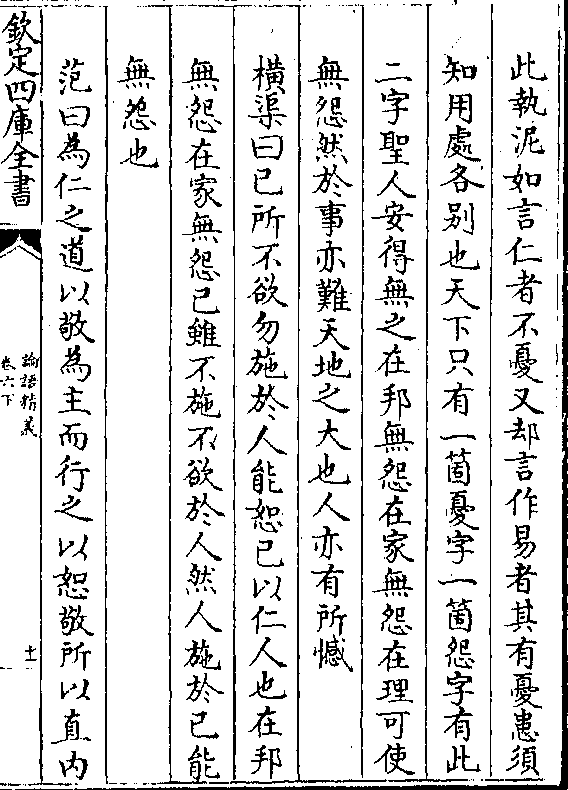 此執泥如言仁者不憂又却言作易者其有憂患須
知用處各别也天下只有一箇憂字一箇怨字有此
二字聖人安得無之在邦無怨在家無怨在理可使
無怨然於事亦難天地之大也人亦有所憾
橫渠曰已所不欲勿施於人能恕已以仁人也在邦
無怨在家無怨已雖不施不欲於人然人施於已能
無怨也
范曰為仁之道以敬為主而行之以恕敬所以直内
欽定四庫全書
論語精義
卷六下
十一